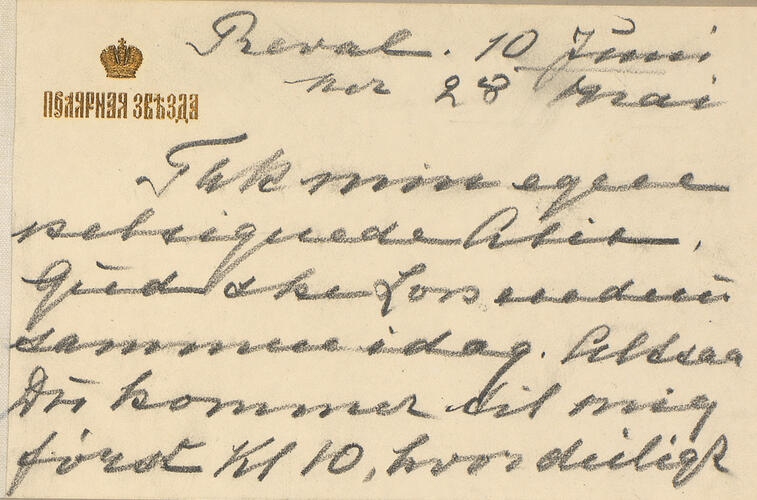 Reval. 10 Juni
28 Mai
ПОЛЯРНАЯ ЗВѢЗДА
Tak min egen
velsignede Alix,
Gud ske Lov endnu
sammen idag. Altsaa
Du kommer til mig
først Kl 10, hvor deiligt